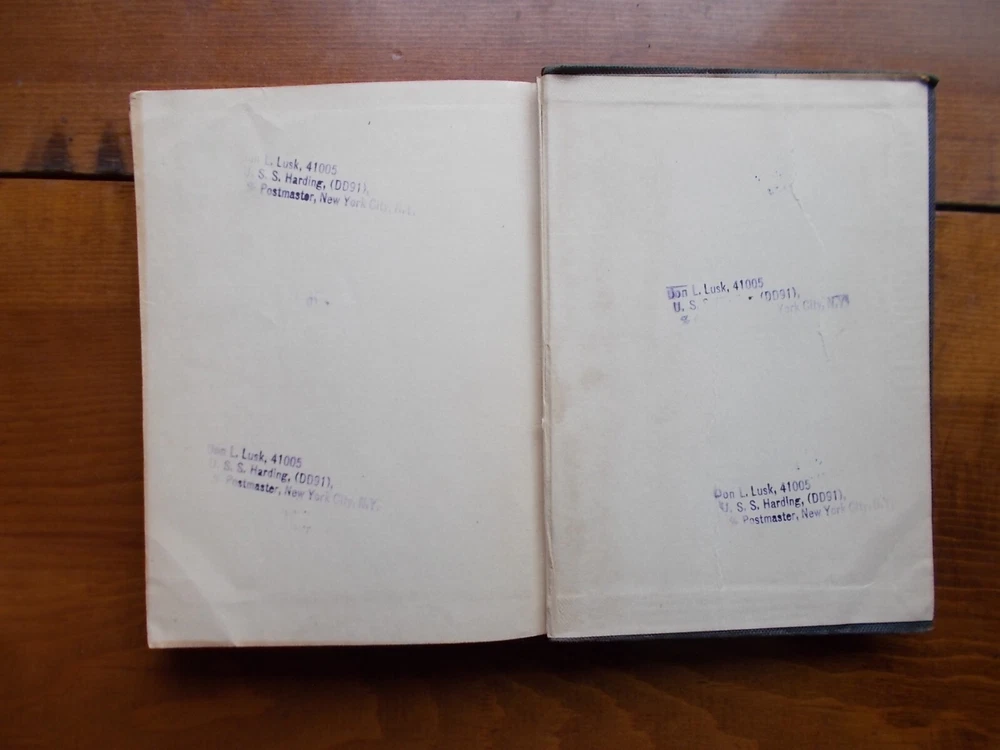 L. Lusk, 41005
S. S. Harding, (DD91),
% Postmaster, New York City, N.Y.
Don L. Lusk, 41005
U. S. S. Harding, (DD91),
% Postmaster, New York City, N.Y.
Don L. Lusk, 41005
U. S. (DD91),
% York City, N.Y.
Don L. Lusk, 41005
U. S. S. Harding, (DD91),
% Postmaster, New York City, N.Y.